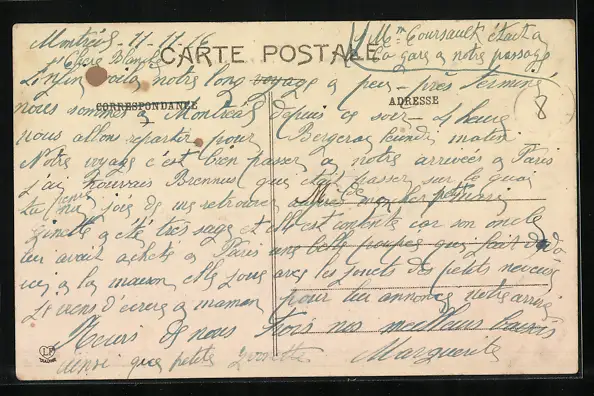 Montreuil 11-11-16
Mme Coursault étai
Chère Blanche
la gare a notre passage
CARTE POSTALE
Enfin voila notre long voyage a peu près terminé
CORRESPONDANCE
ADRESSE
8
nous sommes a Montreuil depuis ce soir 4 heures
nous allons repartir pour Bergerac Lundi matin
Notre voyage c'est bien passer a notre arrivée a Paris
j'ai trouvais Brennus qui était passer sur le quai
de nous retrouver
Ginette a été très sage et elle est contente car son oncle
lui avait acheté a Paris une belle poupée qui fait dodo
ici a la maison elle joue avec les jouets des petits neveux
Je viens d'écrire a maman pour lui annoncer notre arrivée
de nous trois nos meilleurs baisers
ainsi que petite Ginette
Marguerite